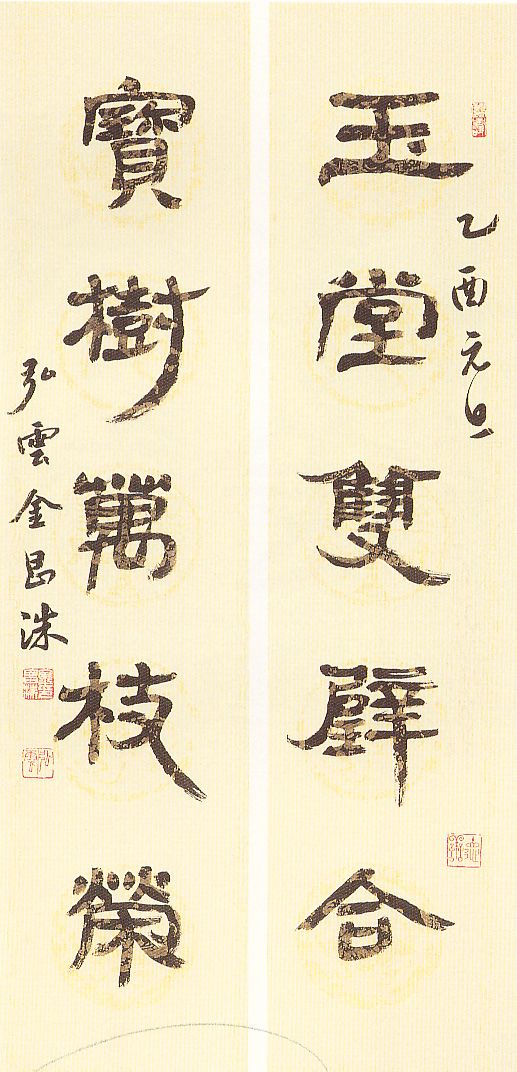 乙酉元旦
玉堂雙璧合
寶樹萬枝榮
弘雲金昌洙